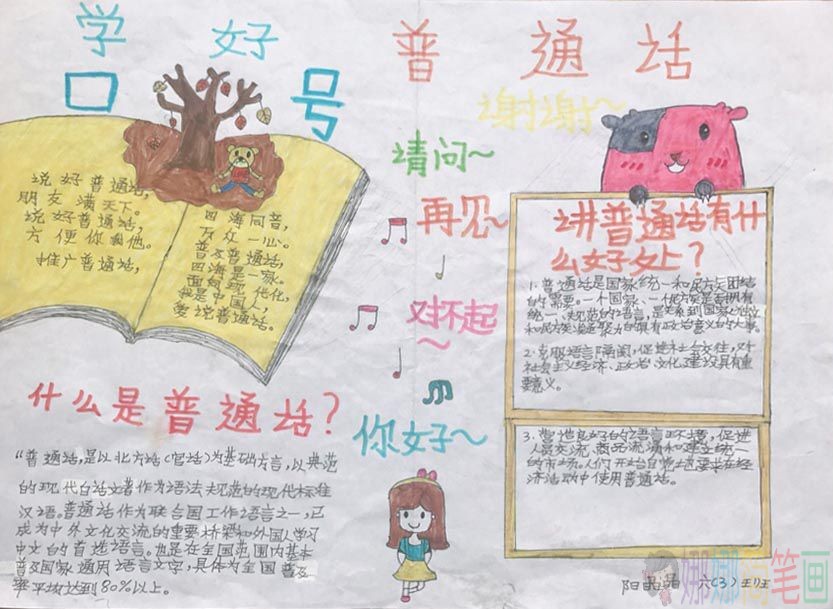 学好普通话
口号
说好普通话,
朋友满天下。
说好普通话,
方便你我他。
推广普通话,
四海同音,
万众一心。
普及普通话,
四海是一家。
面向现代化,
我是中国人,
爱说普通话。
谢谢~
请问~
再见~
对不起~
你好~
讲普通话有什
么好处上?
1.普通话是国家统一和民族团结
的需要。一个国家、一个民族是否拥有
统一、规范的语言,是关系到国家
和民族凝聚力的具有政治意义的大事。
2.克服语言隔阂,促进社会交往,对
社会主义经济、政治、文化建设具有重
要意义。
3.营造良好的语言环境,促进
人员交流,商品流通和建立统一
的市场。人们开始自觉地要求在经
济活动中使用普通话。
什么是普通话?
“普通话,是以北方话(官话)为基础方言,以典范
的现代白话文著作为语法规范的现代标准
汉语。普通话作为联合国工作语言之一,已
成为中外文化交流的重要桥梁和外国人学习
中文的首选语言。也是在全国范围内基本
普及国家通用语言文字,具体为全国普及
率平均达到80%以上。
阳晶晶 六(3)班
娜娜简笔画